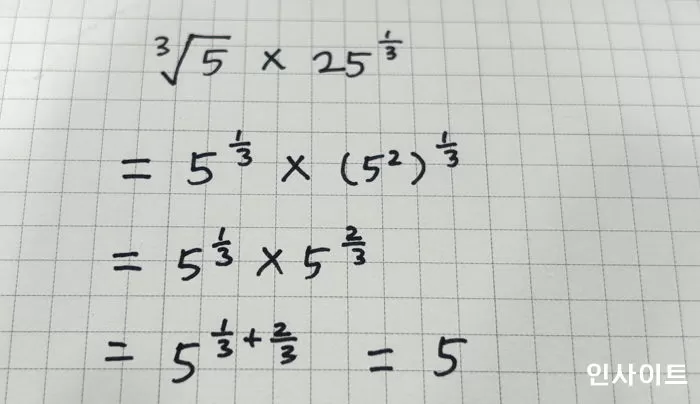 ∛5 × 25^(1/3)
= 5^(1/3) × (5²)^(1/3)
= 5^(1/3) × 5^(2/3)
= 5^(1/3 + 2/3) = 5
인사이트